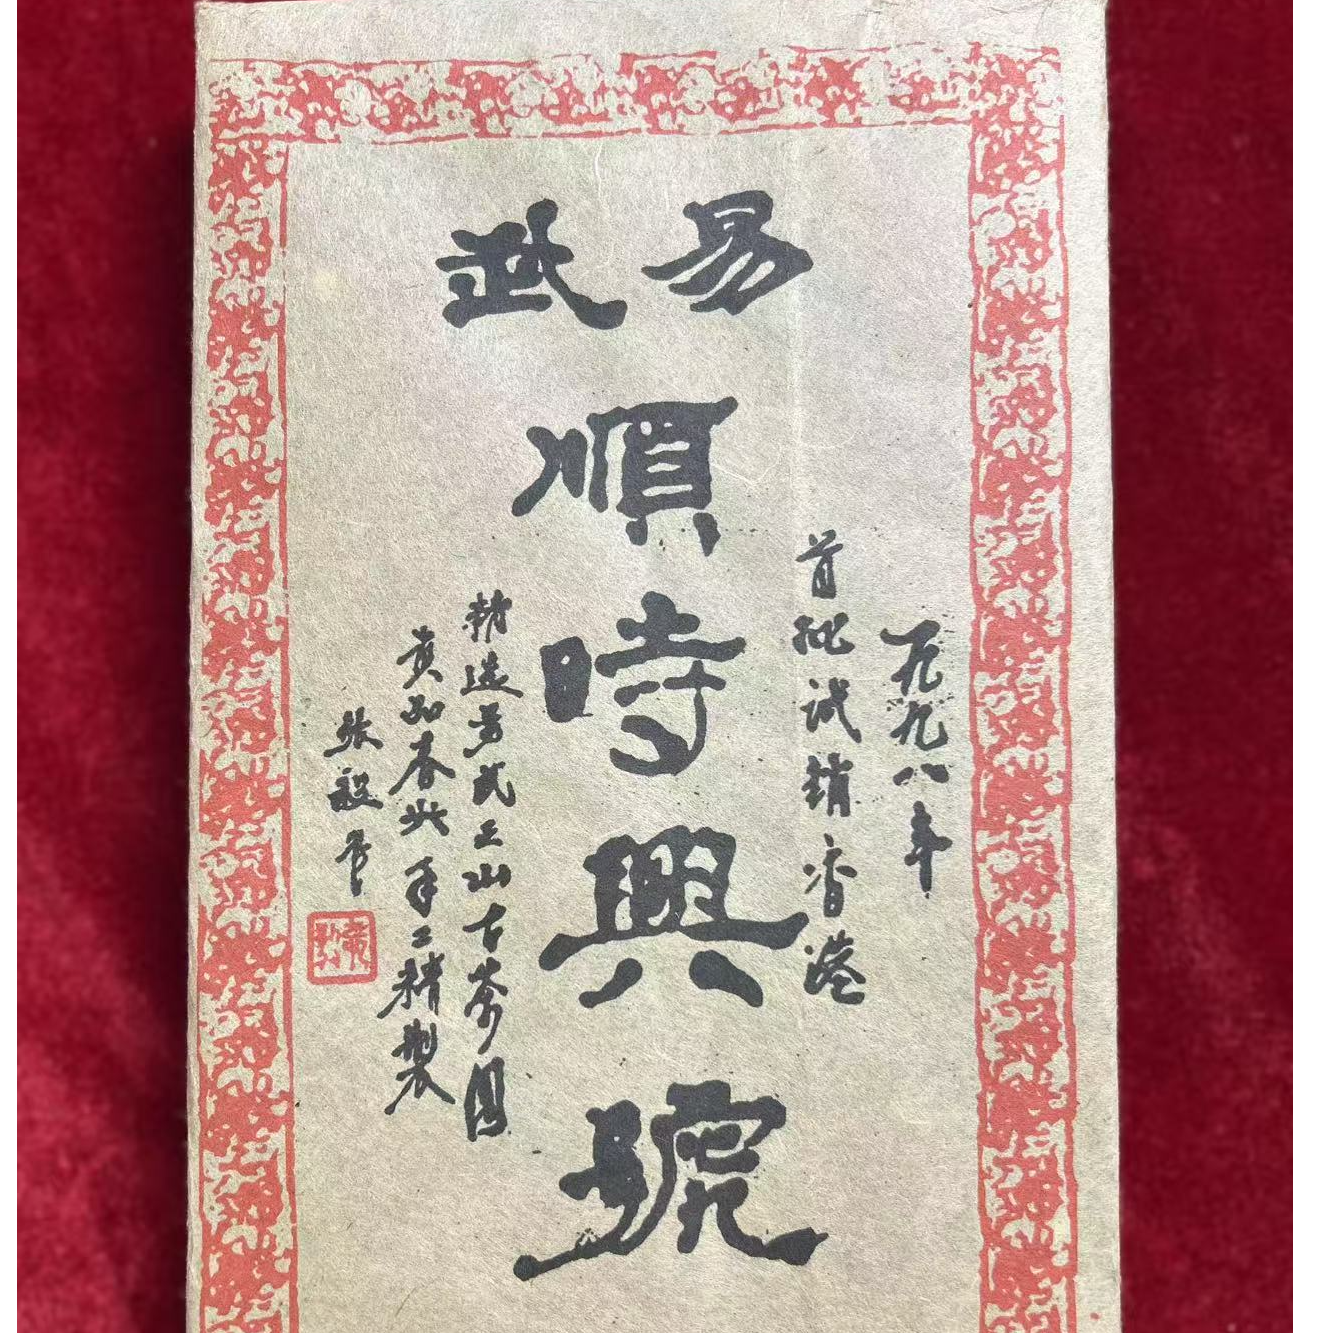 易武
順時興號
一九九八年
首批试销香港
精造易武正山古茶園
真品春尖手工精製
张毅書